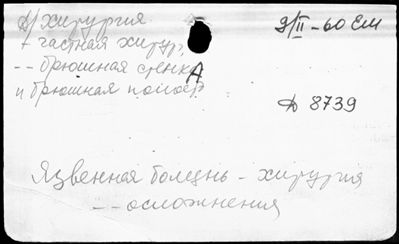 д) хирургия
9/II-60 ЕМ
+ частная хирур.
-- брюшная стенка
и брюшная полост
Д 8739
Язвенная болезнь - хирургия
-- осложнения